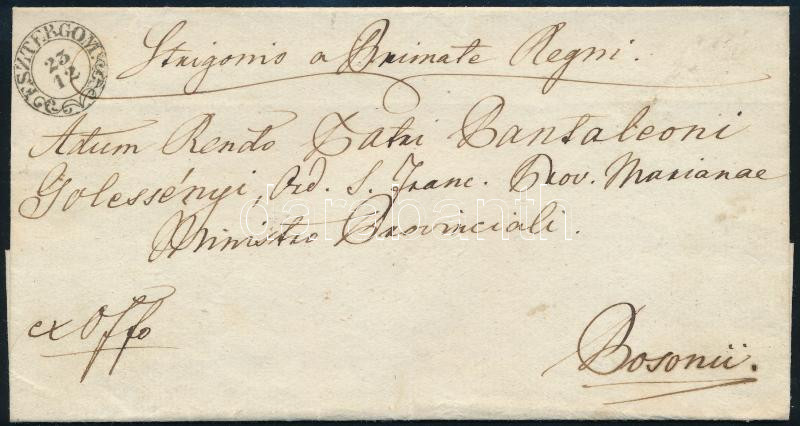 ESZTERGOM
23
12
Strigonio a Primate Regni.
Adum Rendo Patri Pantaleoni
Golessényi, Ord. S. Franc. Prov. Marianae
Ministro Provinciali.
ex Offo
Posonii.
darabanth